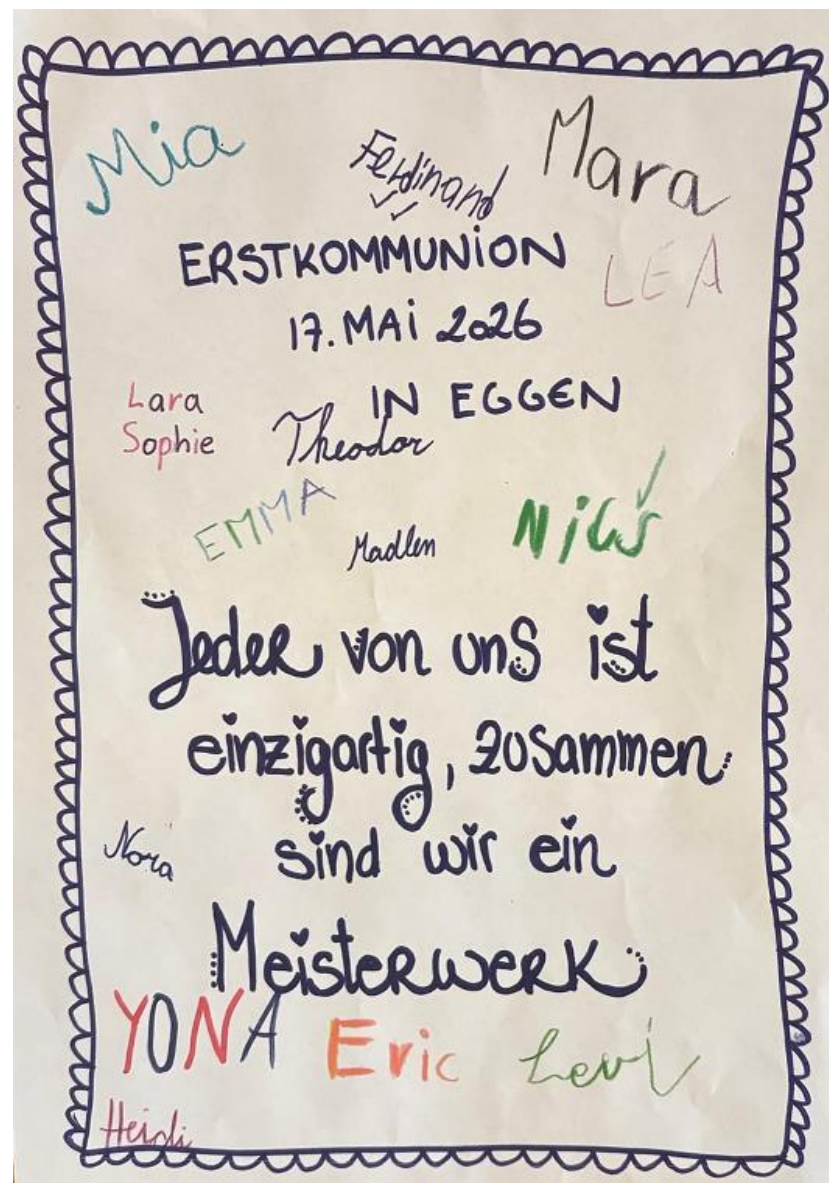 Mia
Ferdinand
Mara
ERSTKOMMUNION
LEA
17. MAi 2026
IN EGGEN
Lara
Sophie
Theodor
EMMA
Madlen
Nils
Jeder von uns ist
einzigartig, zusammen
sind wir ein
Nora
Meisterwerk
YONA
Eric
Levi
Heidi